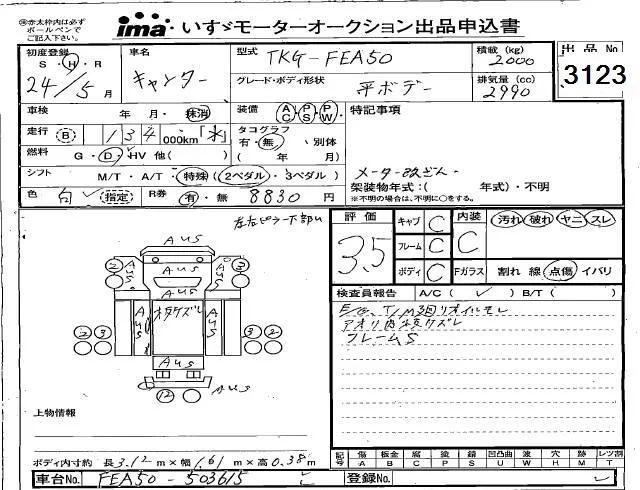 ㊟赤太枠内は必ず
ボールペンで
ご記入下さい。
ima いすゞモーターオークション出品申込書
初度登録 車名 型式 TKG-FEA50 積載(kg) 2000 出品No
S・H・R 24/5月 キャンター グレード・ボディ形状 平ボデー 排気量(cc) 2990 3123
車検 年 月・抹消 装備 AC PS PW 特記事項
走行 B 134 000km「水」 タコグラフ 有・無 別体
燃料 G・D・HV 他( ) ( 年 月)
シフト M/T・A/T・特殊(2ペダル・3ペダル) メーター改ざん
架装物年式:( 年式)・不明
※不明の場合は、不明に○をする。
色 白 指定 R券 有・無 8830円
左右ピラー下部 評価 3.5 キャブ C 内装 C 汚れ 破れ ヤニ スレ
フレーム C
ボディ C Fガラス 割れ 線 点傷 イバリ
検査員報告 A/C( ✓ ) B/T( )
E/G、T/M廻リオイルモレ
アオリ内枝ケズレ
フレームS
AUS
2 AUS AUS 3
AUS
AUS AUS
2 3 3 2
AUS
AUS
12 AUS
上物情報
ボディ内寸約 長3.12m×幅1.61m×高0.38m
記号 傷A 板金B 腐C 塗P 錆S 凹凸曲U 波W 穴H 跡M レツ割T
車台No. FEA50-503615 登録No.